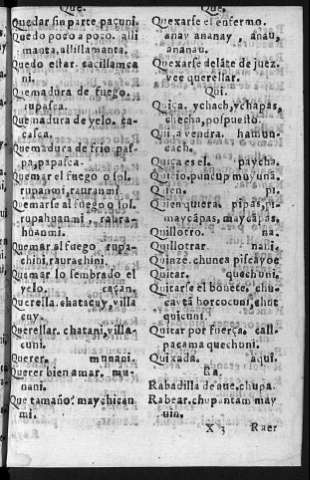 Que.
Quedar sin parte pacuni.
Quedo poco a poco. alli
manta, allillamanta.
Quedo estar. sacillamca
ni.
Quemadura de fuego.
rupasca.
Quemadura de yelo. ca-
casca.
Quemadura de frio pas-
pa, papasca.
Quemar el fuego o sol.
rupanmi, rauranmi.
Quemarle al fuego o sol.
rupahuanmi, raura-
huanmi.
Quemar al fuego rupa-
chini, raurachini.
Quemar lo sembrado el
yelo. caçan.
Querella. chatacuy, villa
cuy.
Querellar. chatani, villa-
cuni.
Querer. munani.
Querer bien amar. mu-
nani.
Que tamaño. maychican
mi.
Que.
Quexarse el enfermo.
anay ananay, añau,
ananau.
Quexarse delãte de juez.
vee querellar.
Qui.
Quiça. ychach, ychapas,
checha, pospuesto.
Qui, a vendra. hamun-
cach.
Quiça es el. paycha.
Quicio. puncup muyuna.
Quien. pi.
Quien quiera. pipas, pi-
maycapas, maycapas,
Quillotro. na.
Quillotrar nani.
Quinze. chunca piscayoc
Quitar. quechuni.
Quitarse el bonete. chu-
cuta horcocuni, chut
quicuni.
Quitar por fuerça. call-
pacama quechuni.
Quixada. aqui.
Ra.
Rabadilla de aue. chupa.
Rabear. chupantam may
uin.
X 3 Raer